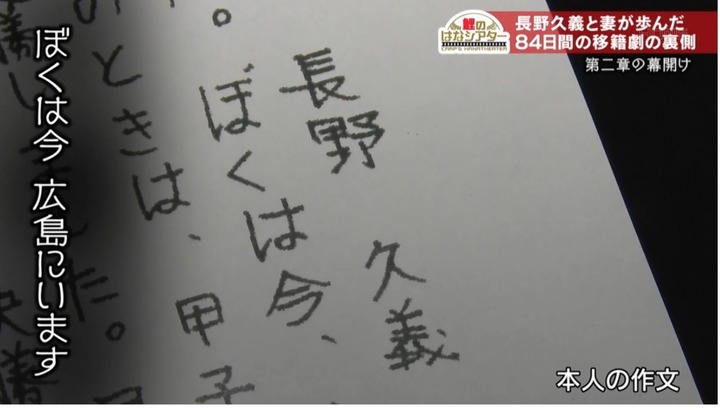 鯉の
はなシアター
CARP'S HANATHEATER
長野久義と妻が歩んだ
84日間の移籍劇の裏側
第二章の幕開け
ぼくは今 広島にいます
長野 久義
ぼくは今、
ときは、甲子
た。
本人の作文